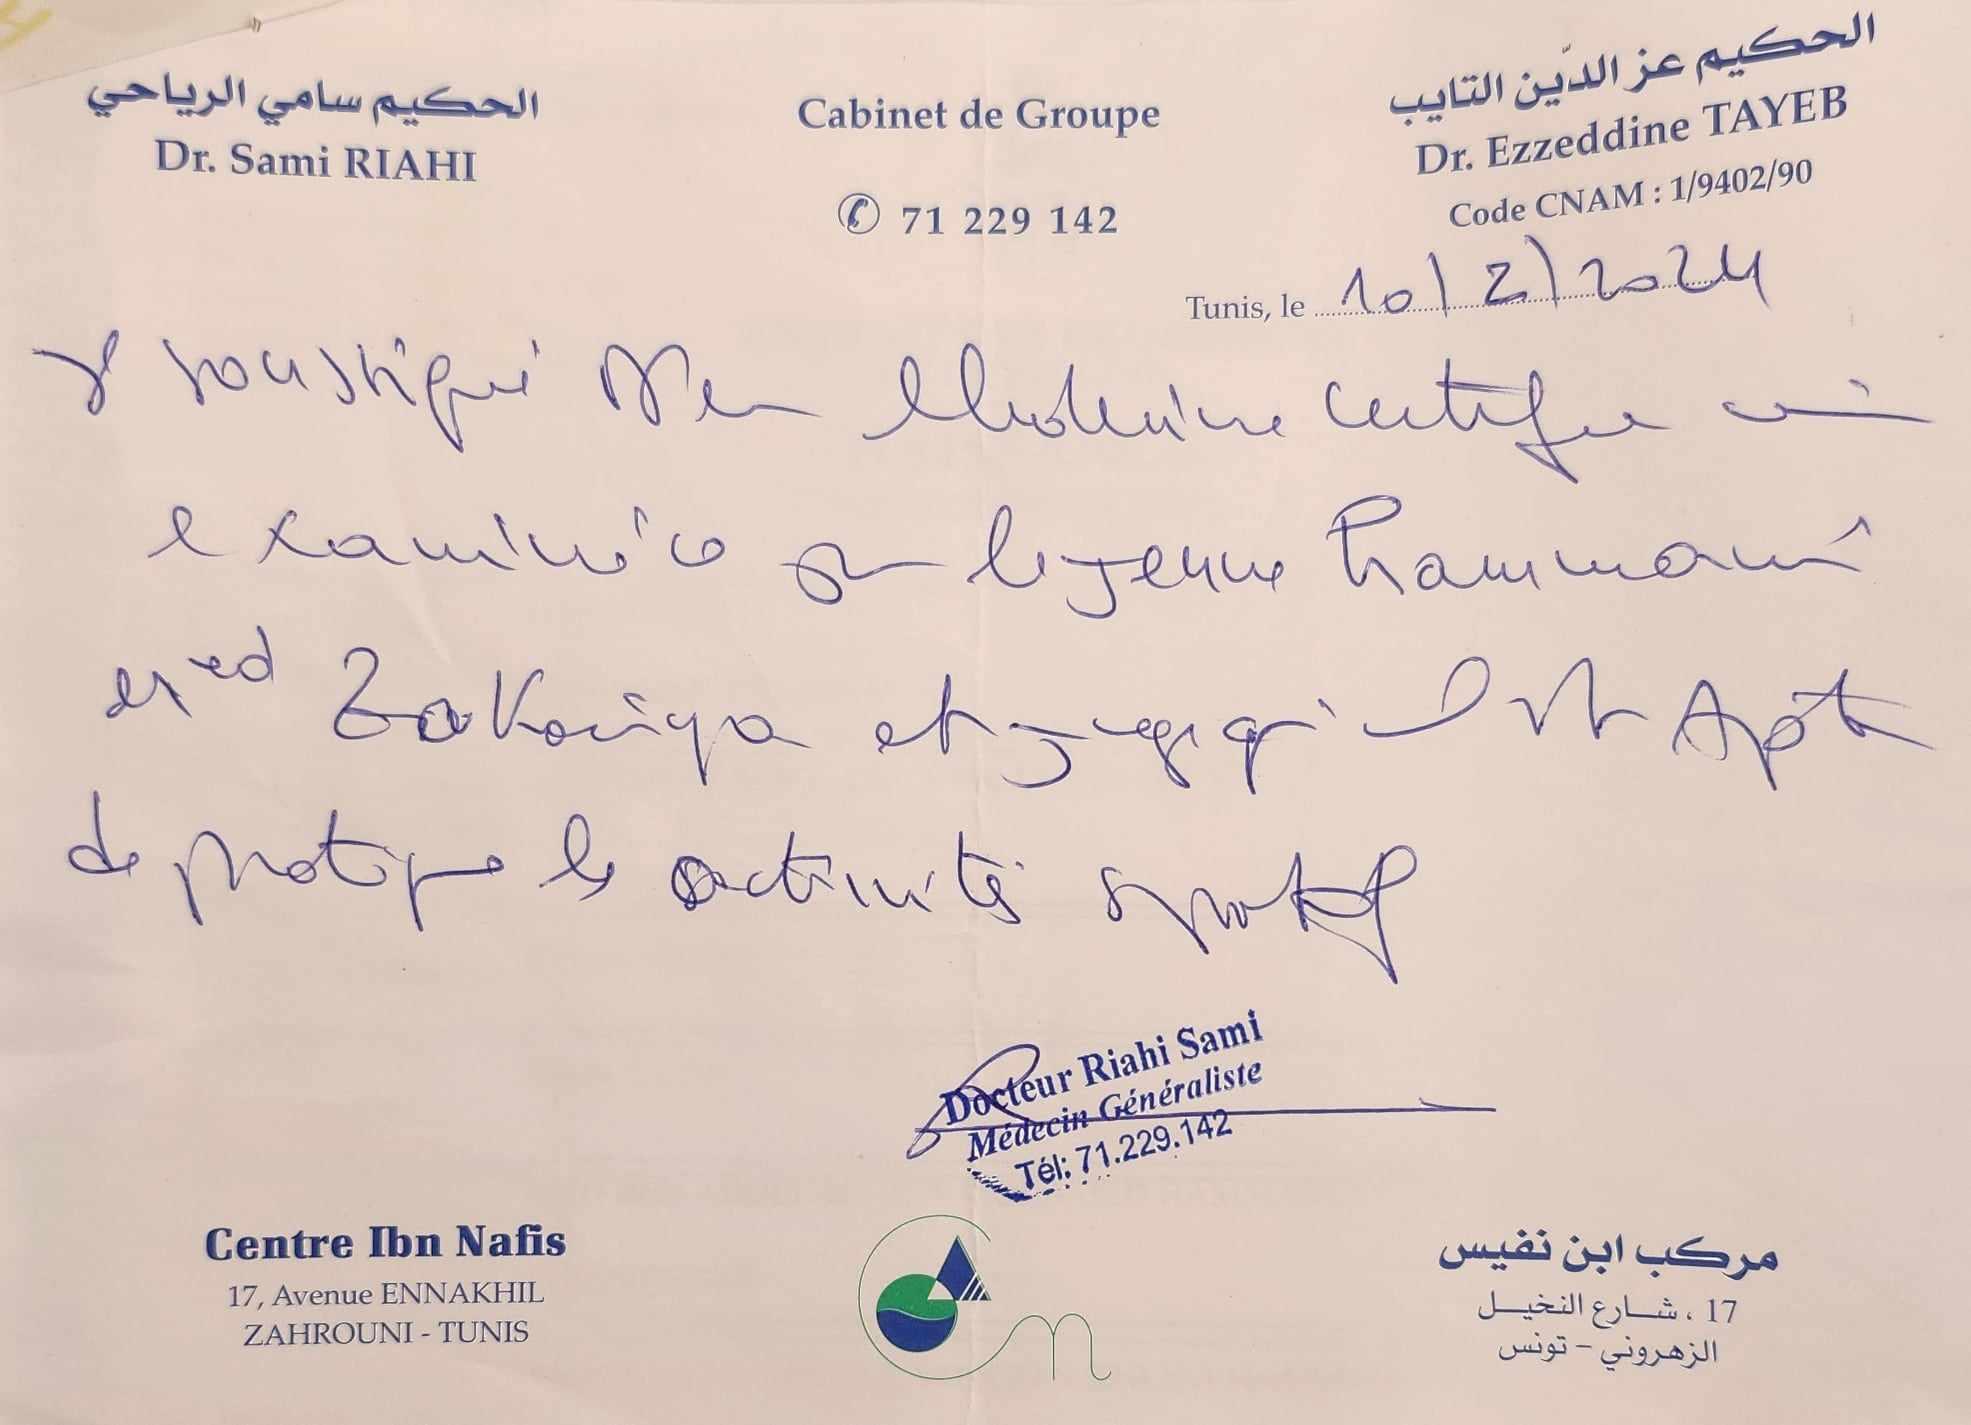 الحكيم سامي الرياحي
Dr. Sami RIAHI
Cabinet de Groupe
✆ 71 229 142
الحكيم عز الدّين التايب
Dr. Ezzeddine TAYEB
Code CNAM : 1/9402/90
Tunis, le 10/2/2024
soussigné certifie
examiné ce le jeune Hammami
Med Zakariya et juge qu'il est Apte
de pratique les activités
Docteur Riahi Sami
Médecin Généraliste
Tél: 71.229.142
Centre Ibn Nafis
17, Avenue ENNAKHIL
ZAHROUNI - TUNIS
مركب ابن نفيس
17 ، شارع النخيل
الزهروني - تونس